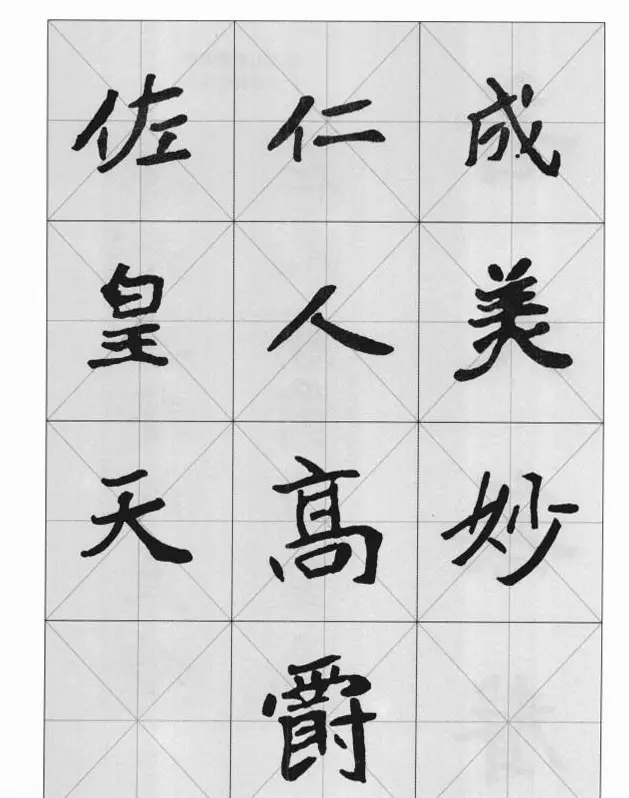 成美妙
仁人高爵
佐皇天